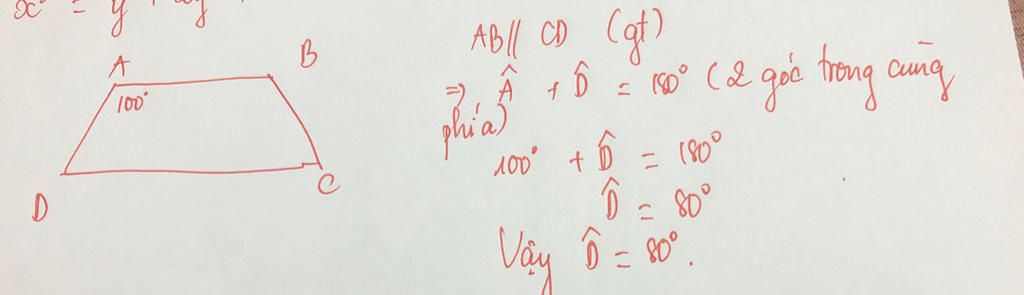 x² = y
A
B
100°
D
C
AB // CD (gt)
=> Â + D̂ = 180° (2 góc trong cùng
phía)
100° + D̂ = 180°
D̂ = 80°
Vậy D̂ = 80°.